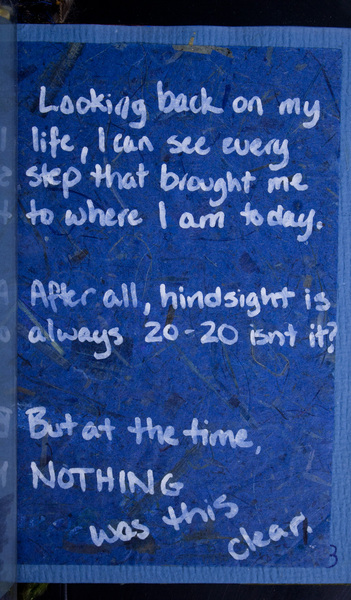 Looking back on my
life, I can see every
step that brought me
to where I am today.
After all, hindsight is
always 20-20 isnt it?
But at the time,
NOTHING
was this
clear.
3